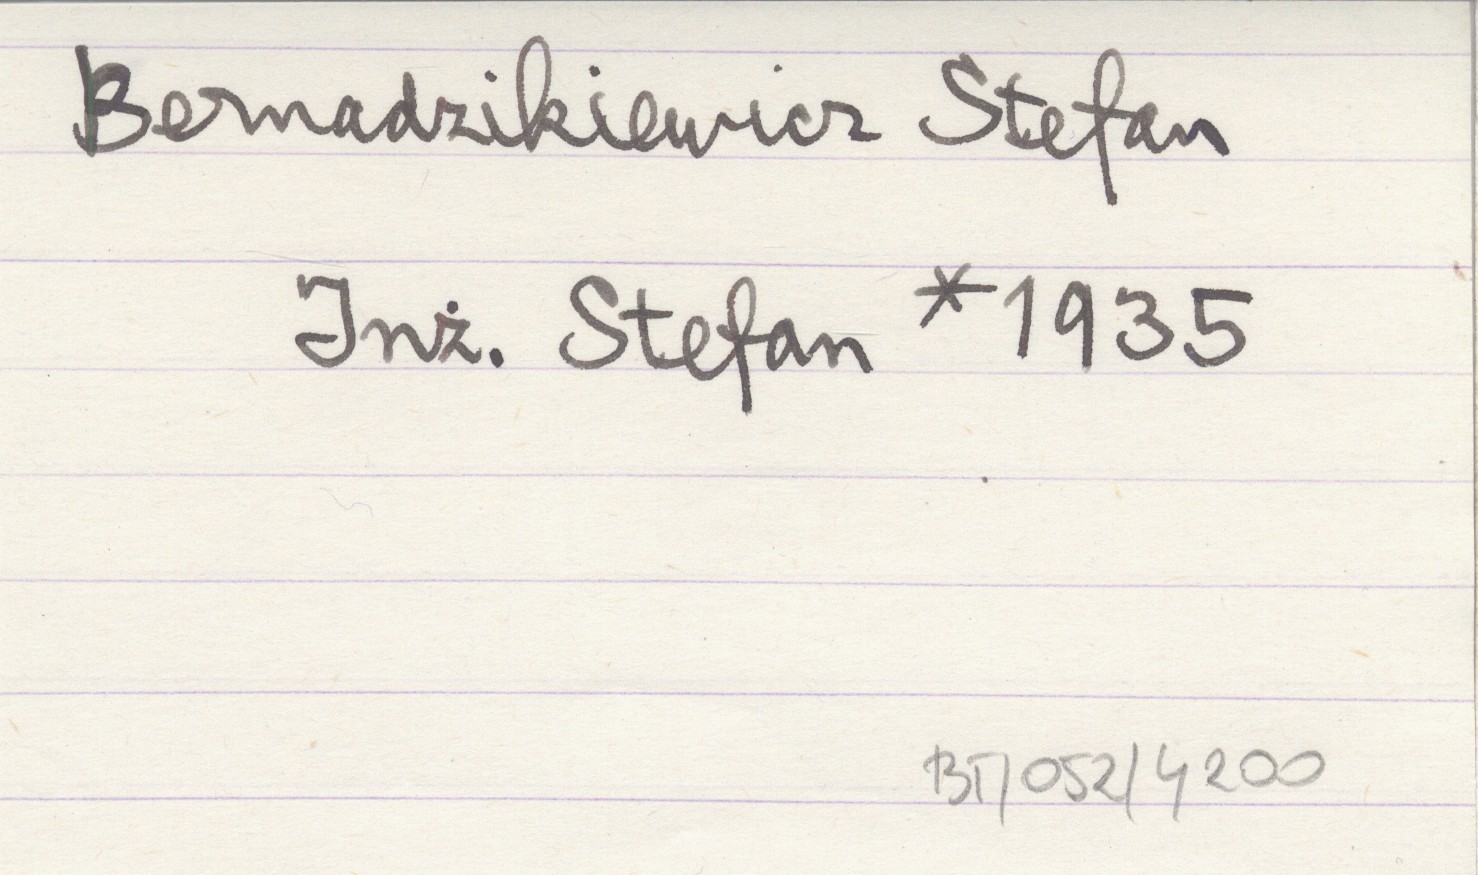 Bernadzikiewicz Stefan
Inż. Stefan *1935
BT/052/4200